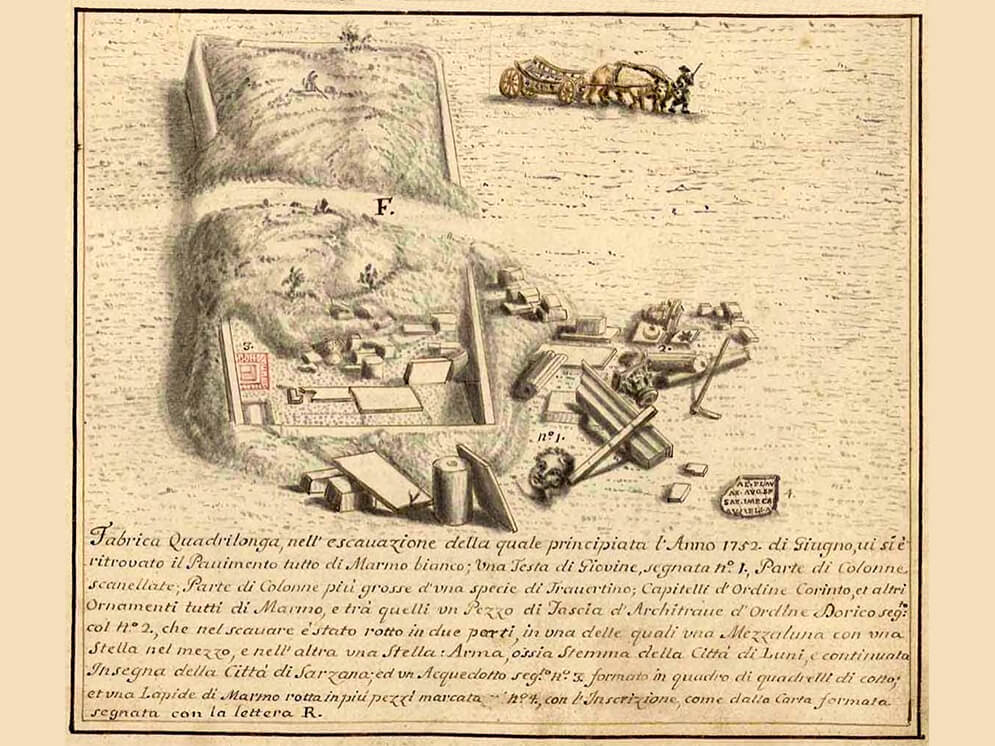 F.
3.
2.
nº 1.
4.
Fabrica Quadrilonga, nell' escavazione della quale principiata l'Anno 1752. di Giugno, vi si è
ritrovato il Pavimento tutto di Marmo bianco; Vna Testa di Giovine, segnata nº. 1., Parte di Colonne
scanellate; Parte di Colonne più grosse d'vna specie di Travertino; Capitelli d'Ordine Corinto, et altri
Ornamenti tutti di Marmo, e trà quelli vn Pezzo di Fascia d'Architrave d'Ordine Dorico seg:to
col nº 2., che nel scavare è stato rotto in due parti, in vna delle quali vna Mezzaluna con vna
Stella nel mezzo, e nell' altra vna Stella: Arma, ossia Stemma della Città di Luni, e continuata
Insegna della Città di Sarzana; ed vn Acquedotto seg:to nº 3. formato in quadro di quadrelli di cotto;
et vna Lapide di Marmo rotta in più pezzi marcata nº 4., con l'Inscrizione, come dalla Carta formata
segnata con la lettera R.